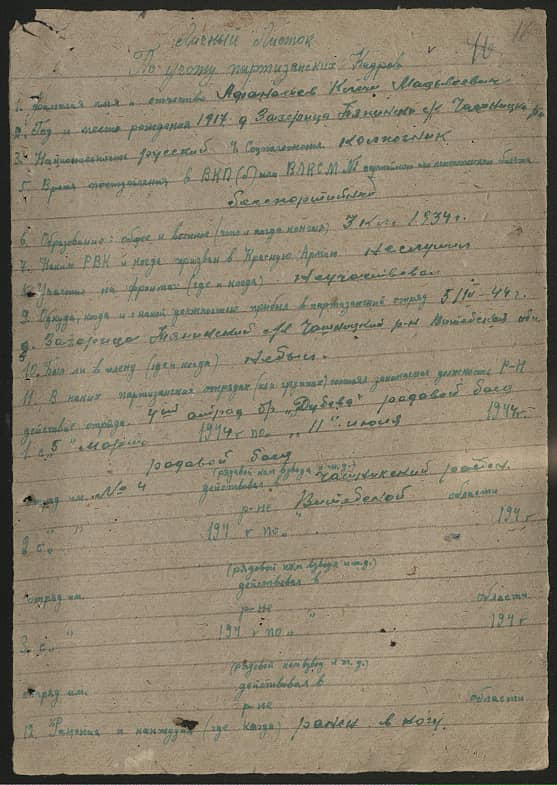 16
Личный Листок
По учоту партизанских Кадров
1. Фамилия имя и отчество Афанасьев
2. Год и место рождения 1917 д Загорица с/с Чашницки р-н
3. Национальность русский 4 Соцположение колхозник
5. Время поступления в ВКП(б) или ВЛКСМ №
беспортийный
6. Образование: общее и военное (что и когда кончил) 3 кл. 1934 г.
7. Каким РВК и когда призван в Красную Армию неслужил
8. Участие на фронтах (где и когда) Неучаствовал
9. Откуда, когда и с какой должностью прибыл в партизанский отряд 5/III-44 г.
д. Загорица с/с Чашницкий р-н Витебской обл
10. Был ли в плену (где и когда) небыл.
11. В каких партизанских отрядах (или группах) состоял занимаемые должность Р-Н
действия отряда. 4ый отряд бр. "Дубова" радовой боец
1. с "5" марта 1944 г по "11" июня 1944 г.
радовой боец
(рядовой ком взвода и т.д.)
отряд им. №4 действовал в Чашникский район
р-не Витебской области
2 с " " 194 г по " 194 г
(рядовой ком взвода и т.д.)
отряд им. действовал в
р-не области
3. с " " 194 г по " 194 г
(рядовой ком взвод и т.д.)
отряд им. действовал в
р-не области
12. Ранения и контузии (где когда) ранен в ногу.